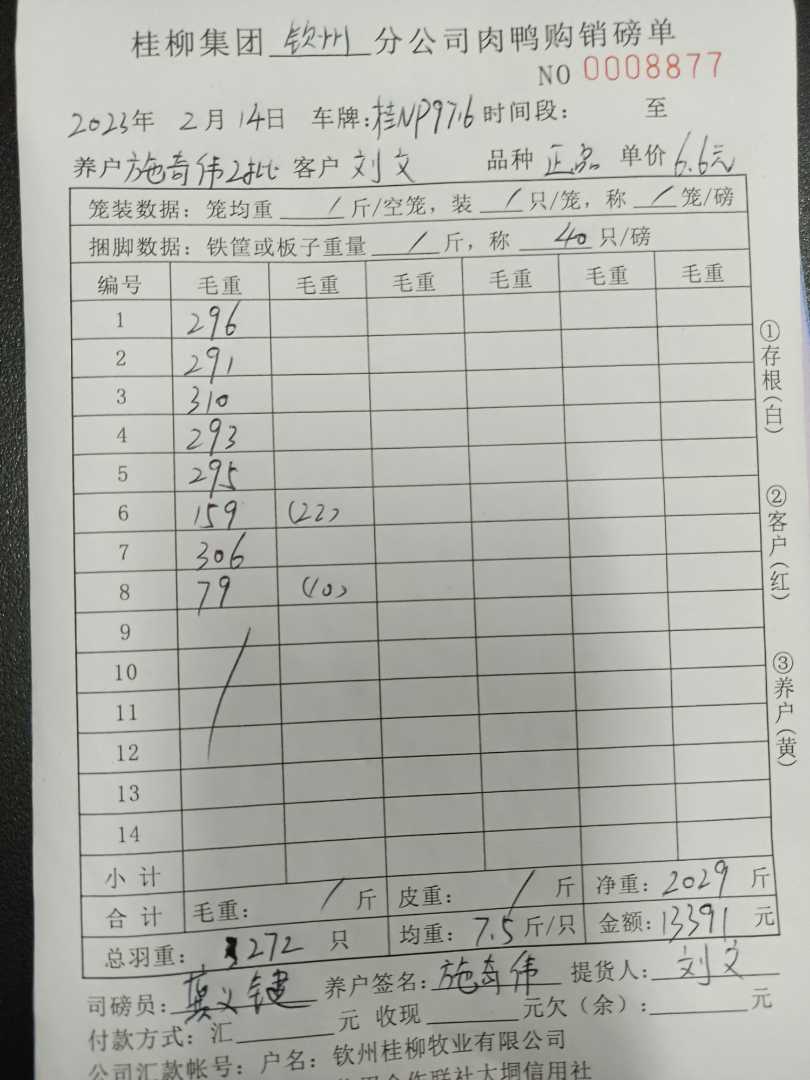 桂柳集团 钦州 分公司肉鸭购销磅单
NO 0008877
2023年 2月14日 车牌:桂NP9716 时间段: 至
养户 施奇伟2批 客户 刘文 品种 正品 单价 6.6元
笼装数据: 笼均重 / 斤/空笼, 装 / 只/笼, 称 / 笼/磅
捆脚数据: 铁筐或板子重量 / 斤, 称 40 只/磅
编号 毛重 毛重 毛重 毛重 毛重 毛重
1 296
2 291
3 310
4 293
5 295
6 159 (22)
7 306
8 79 (10)
9
10
11
12
13
14
小计
合计 毛重: / 斤 皮重: / 斤 净重: 2029 斤
总羽重: 272 只 均重: 7.5 斤/只 金额: 13391 元
司磅员: 义键 养户签名: 施奇伟 提货人: 刘文
付款方式: 汇 元 收现 元欠(余): 元
公司汇款帐号: 户名: 钦州桂柳牧业有限公司
合作联社大垌信用社
①存根(白)
②客户(红)
③养户(黄)